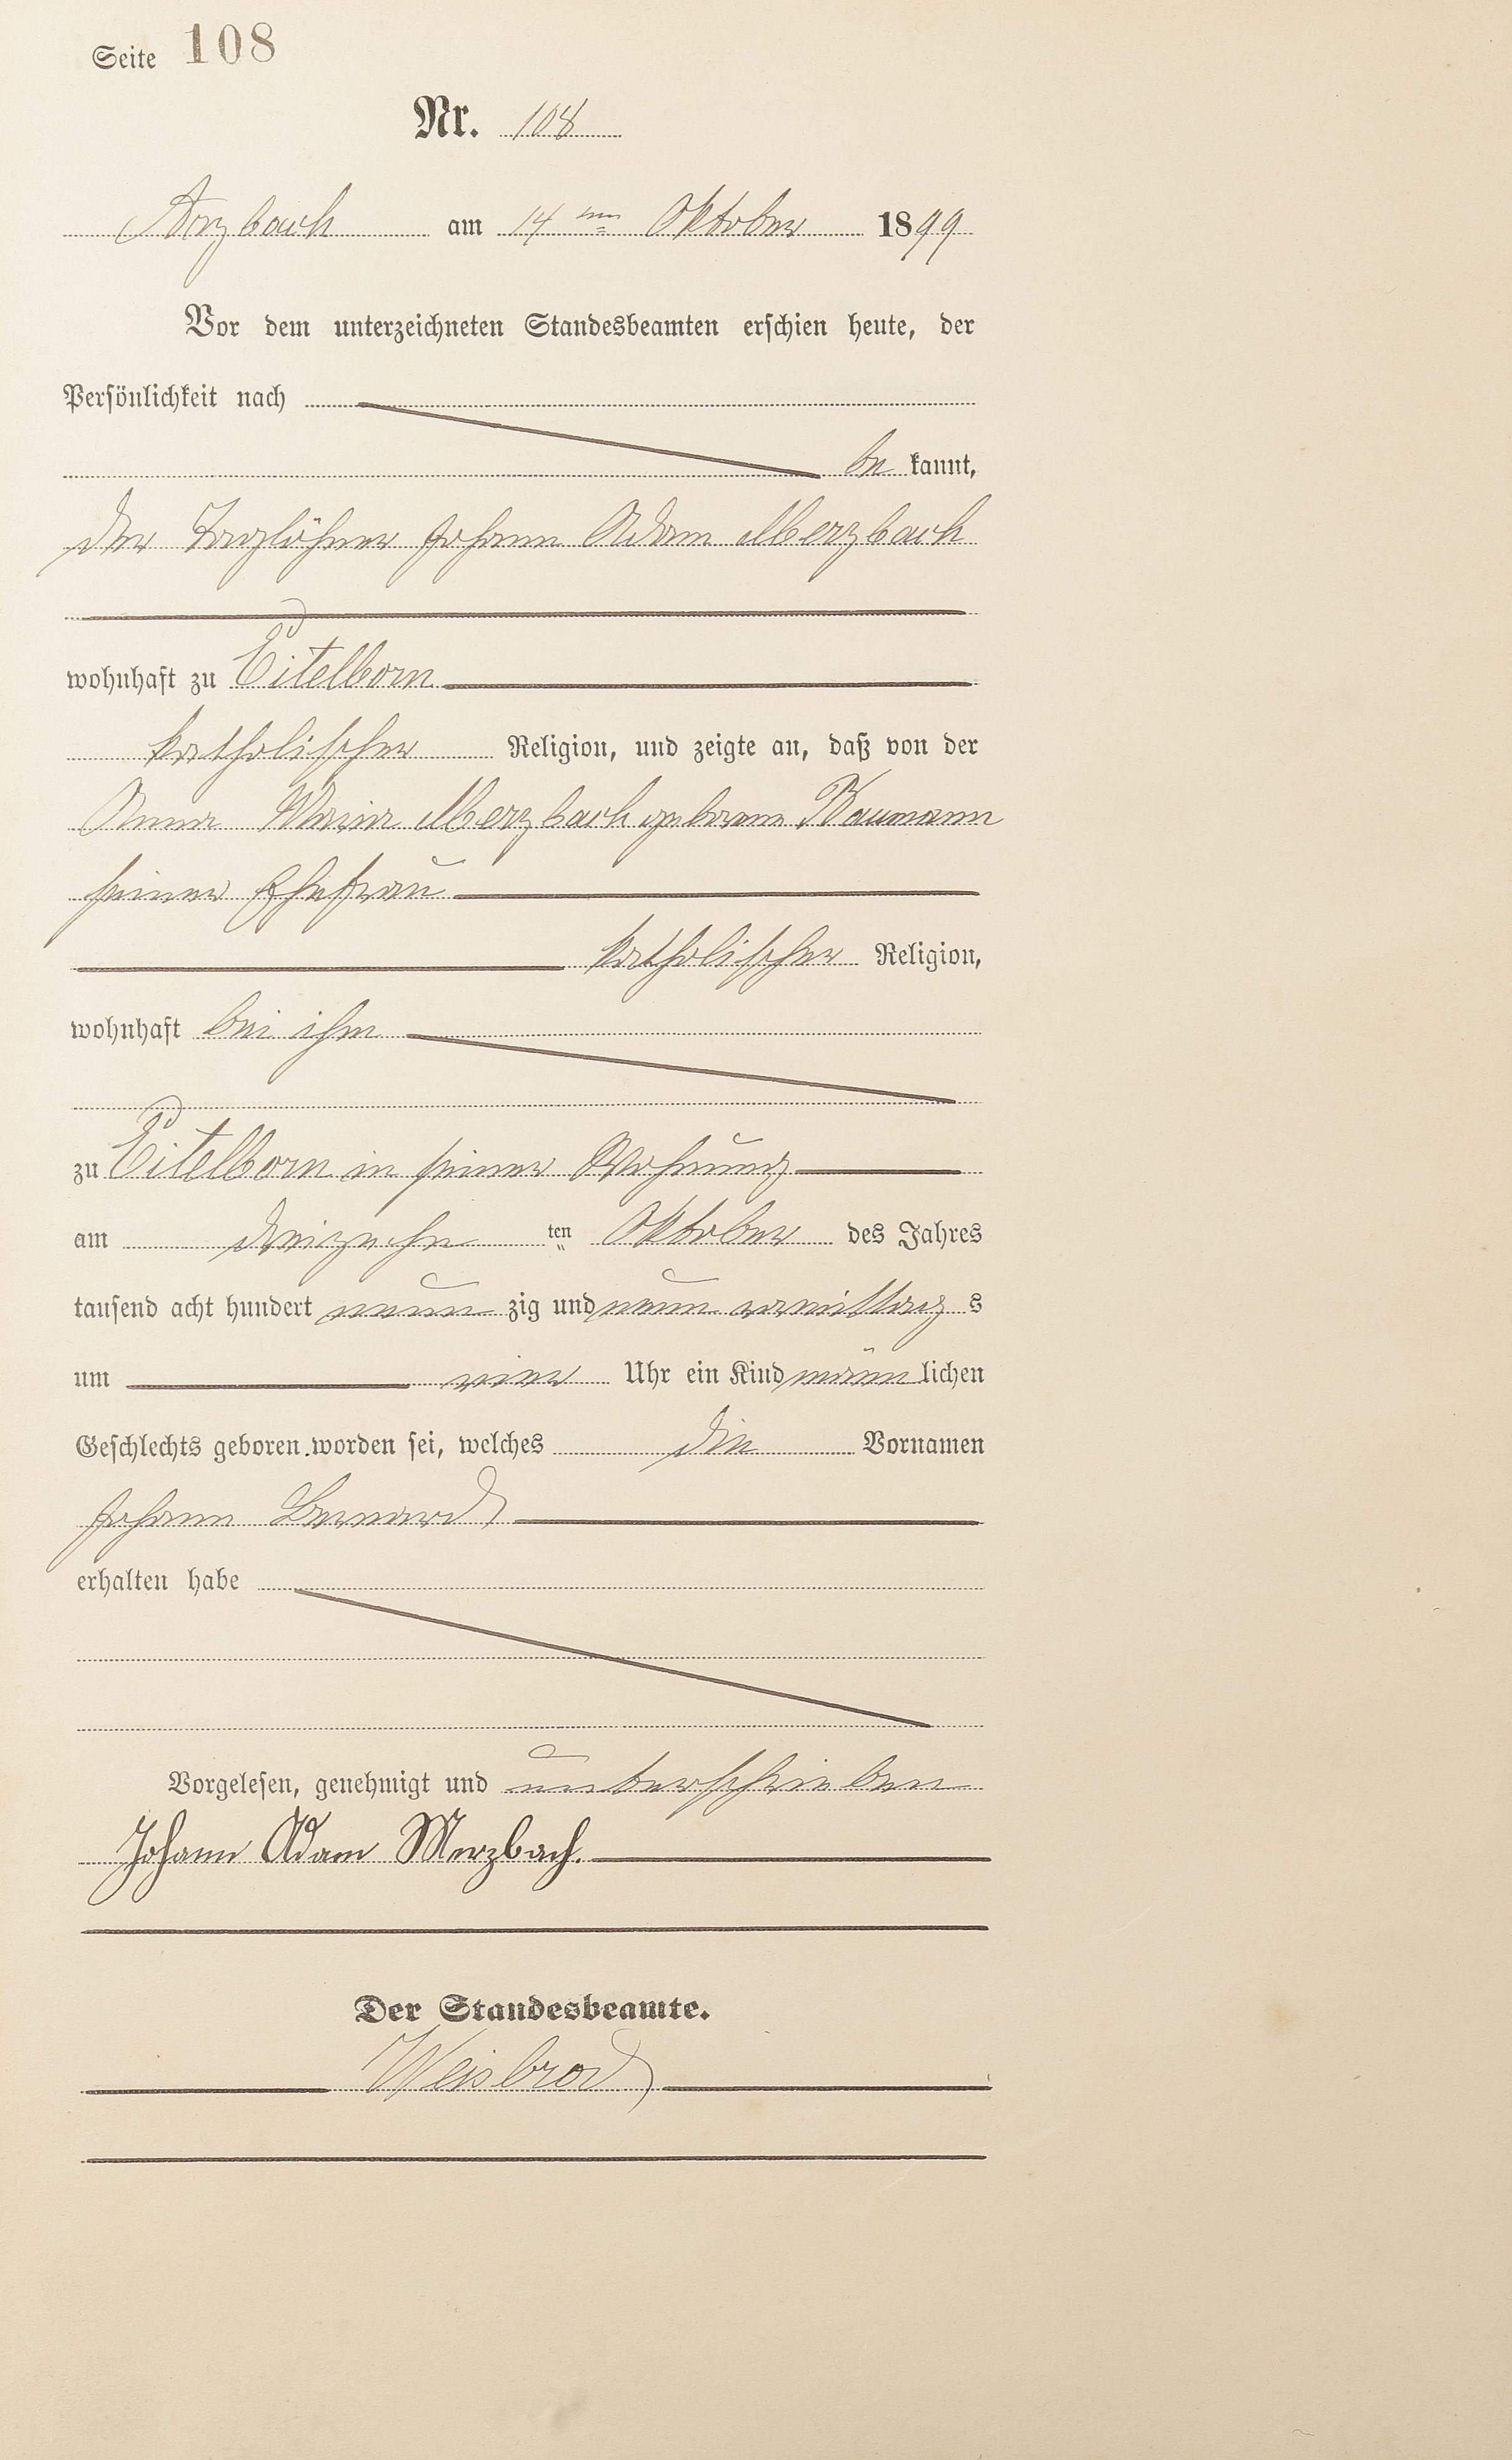 Seite 108
Nr. 108
Arzbach am 14ten Oktober 1899
Vor dem unterzeichneten Standesbeamten erschien heute, der
Persönlichkeit nach
be kannt,
der Taglöhner Johann Adam Merzbach
wohnhaft zu Eitelborn
katholischer Religion, und zeigte an, daß von der
Anna Maria Merzbach geborene Baumann
seiner Ehefrau
katholischer Religion,
wohnhaft bei ihm
zu Eitelborn in seiner Wohnung
am dreizehn ten Oktober des Jahres
tausend acht hundert neun zig und neun vormittag s
um vier Uhr ein Kind männ lichen
Geschlechts geboren worden sei, welches die Vornamen
Johann Bernard
erhalten habe
Vorgelesen, genehmigt und unterschrieben
Johann Adam Merzbach.
Der Standesbeamte.
Weisbrod